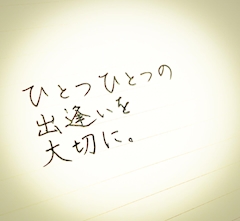 ひとつひとつの
出逢いを
大切に。